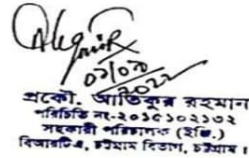 ০১/০৩
২০২২
প্রকৌ. আতিকুর রহমান
পরিচিতি নং-২০১৫১০২১৩২
সহকারী পরিচালক (ইঞ্জি.)
বিআরটিএ, চট্টগ্রাম বিভাগ, চট্টগ্রাম।